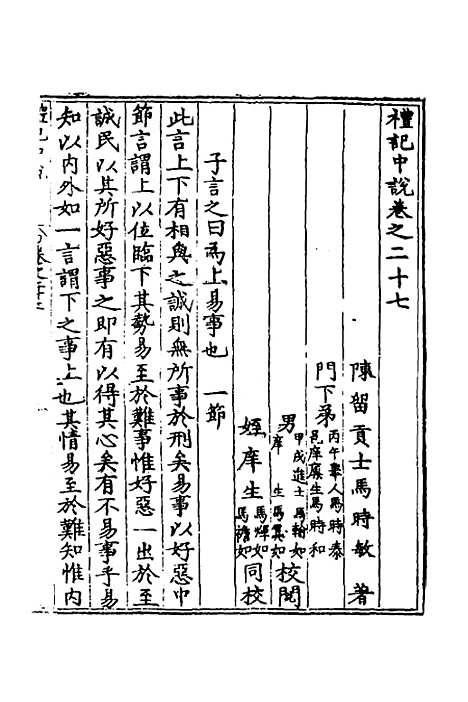 禮記中說卷之二十七
陳留貢士馬時敏 著
門下弟 丙午舉人馬時泰
邑庠廩生馬時和
男 甲戌進士馬翰如
庠生馬翼如 校閱
姪庠生 馬燁如
馬襜如 同校
子言之曰為上易事也 一節
此言上下有相與之誠則無所事於刑矣易事以好惡中
節言謂上以位臨下其勢易至於難事惟好惡一出於至
誠民以其所好惡事之即有以得其心矣有不易事乎易
知以內外如一言謂下之事上也其情易至於難知惟內